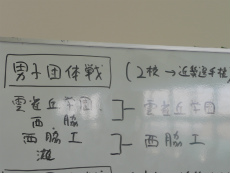 男子団体戦 (2校→近畿選手権
雲雀丘学園 雲雀丘学園
西脇
西脇工 西脇工
灘